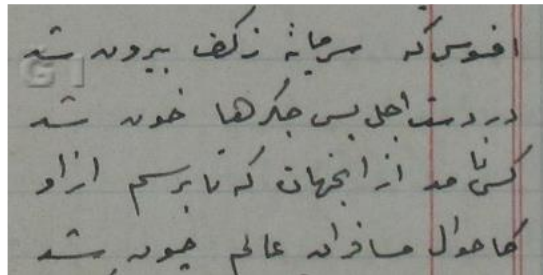 افسوس که سرمایه زکف بیرون شد
در دست اجل بسی جگرها خون شد
کس نامد از انجهان که تا پرسم ازاو
کاحوال مسافران عالم چون شد